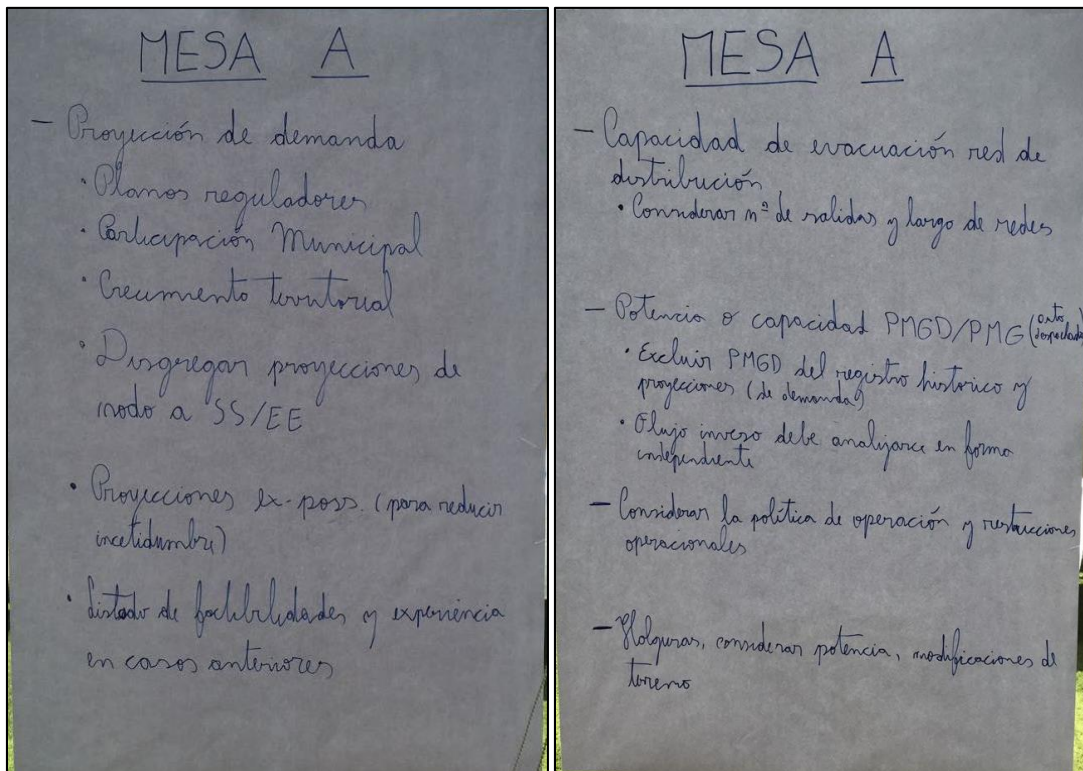 MESA A
- Proyección de demanda
· Planos reguladores
· Participación Municipal
· Crecimiento territorial
· Disgregar proyecciones de
nodo a SS/EE
· Proyecciones ex-poss. (para reducir
incetidumbre)
· Listado de factibilidades y experiencia
en casos anteriores
MESA A
- Capacidad de evacuación red de
distribución
· Considerar nº de salidas y largo de redes
- Potencia o capacidad PMGD/PMG (auto
despachado)
· Excluir PMGD del registro historico y
proyecciones (de demanda)
· Flujo inverso debe analizarce en forma
independiente
- Considerar la política de operación y restricciones
operacionales
- Holguras, considerar potencia, modificaciones de
terreno